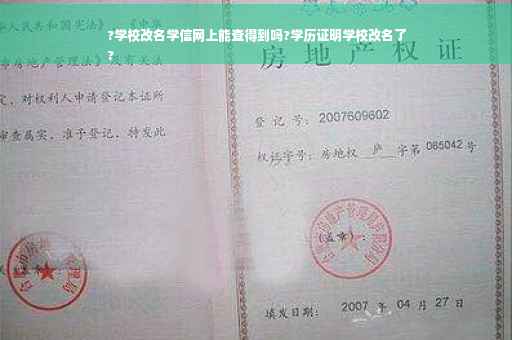 ?学校改名学信网上能查得到吗?学历证明学校改名了
?
人民共和国宪法》
房地产管理法》及有关法
定,对权利人申请登记本证所
审查属实,准予登记,特发此
房地产权
登记号:2007609602
权证字号:房地权 庐 字第 065042 号
(盖章):
填发日期: 2007 年 04 月 27 日